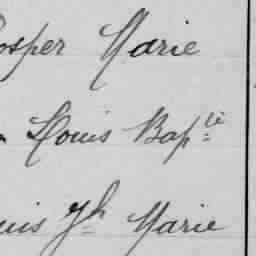 osper Marie
Louis Bap.te
uis Jh Marie